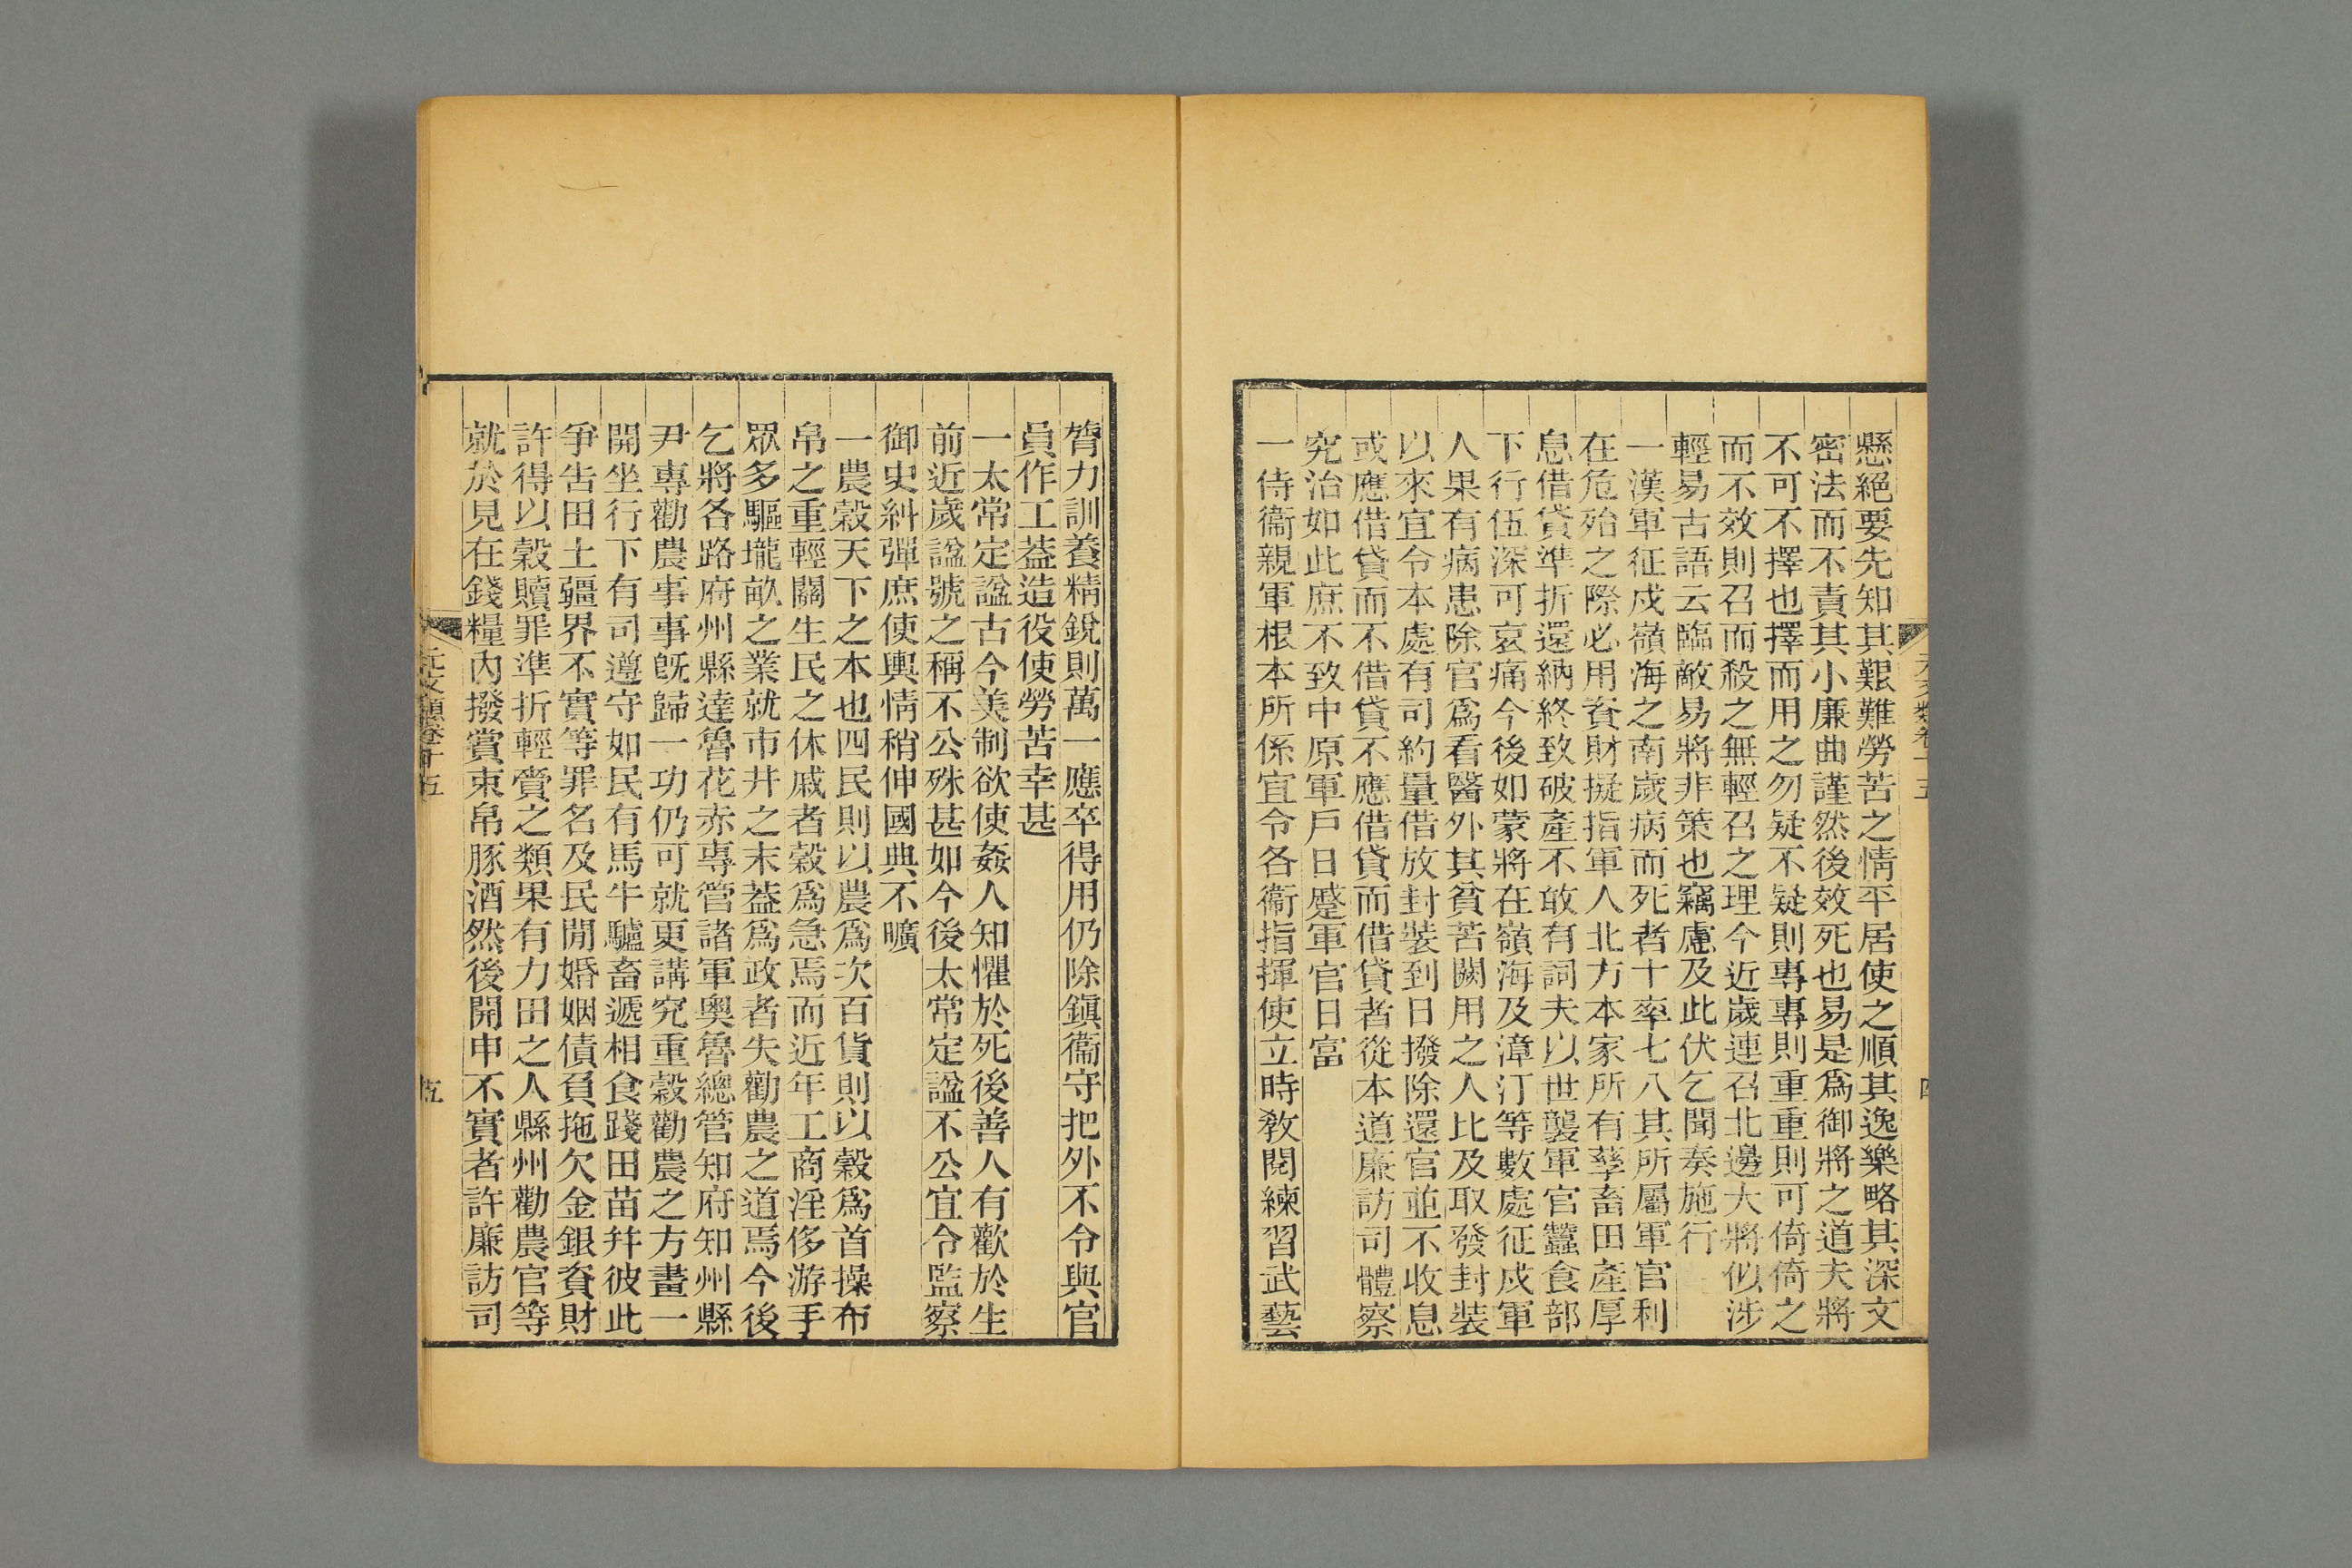 懸絕要先知其艱難勞苦之情平居使之順其逸樂略其深文
密法而不責其小廉曲謹然後效死也易是爲御將之道夫將
不可不擇也擇而用之勿疑不疑則專專則重重則可倚倚之
而不效則召而殺之無輕召之理今近歲連召北邊大將似涉
輕易古語云臨敵易將非策也竊慮及此伏乞聞奏施行
一漢軍征戍嶺海之南歲病而死者十率七八其所屬軍官利
在危殆之際必用資財擬指軍人北方本家所有孳畜田產厚
息借貸準折還納終致破產不敢有詞夫以世襲軍官蠶食部
下行伍深可哀痛今後如蒙將在嶺海及漳汀等數處征戍軍
人果有病患除官爲看醫外其貧苦闕用之人比及取發封裝
以來宜令本處有司約量借放封裝到日撥除還官並不收息
或應借貸而不借貸不應借貸而借貸者從本道廉訪司體察
究治如此庶不致中原軍戶日蹙軍官日富
一侍衞親軍根本所係宜令各衞指揮使立時敎閱練習武藝
膂力訓養精銳則萬一應卒得用仍除鎭衞守把外不令與官
員作工葢造役使勞苦幸甚
一太常定諡古今美制欲使姦人知懼於死後善人有歡於生
前近歲諡號之稱不公殊甚如今後太常定諡不公宜令監察
御史糾彈庶使輿情稍伸國典不曠
一農穀天下之本也四民則以農爲次百貨則以穀爲首操布
帛之重輕關生民之休戚者穀爲急焉而近年工商淫侈游手
眾多驅壠畝之業就市井之末葢爲政者失勸農之道焉今後
乞將各路府州縣達魯花赤專管諸軍奧魯總管知府知州縣
尹專勸農事事旣歸一功仍可就更講究重穀勸農之方畫一
開坐行下有司遵守如民有馬牛驢畜遞相食踐田苗幷彼此
爭告田土疆界不實等罪名及民閒婚姻債負拖欠金銀資財
許得以穀贖罪準折輕賫之類果有力田之人縣州勸農官等
就於見在錢糧內撥賞束帛豚酒然後開申不實者許廉訪司
元文類卷十五
五